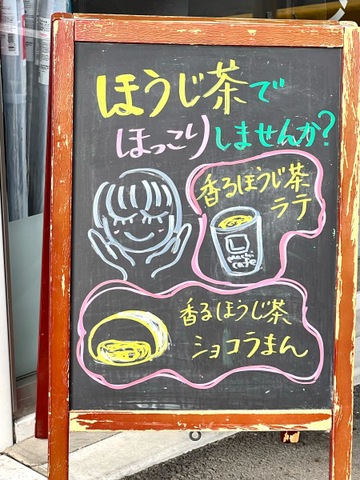 ほうじ茶で
ほっこりしませんか?
香るほうじ茶
ラテ
L
machi
cafe
香るほうじ茶
ショコラまん